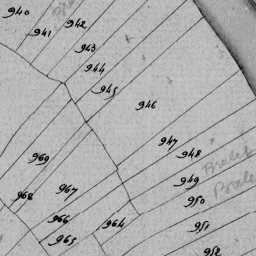 940
942
941
943
944
945
946
947
948
969
949
967
968
950
966
964
951
965
952